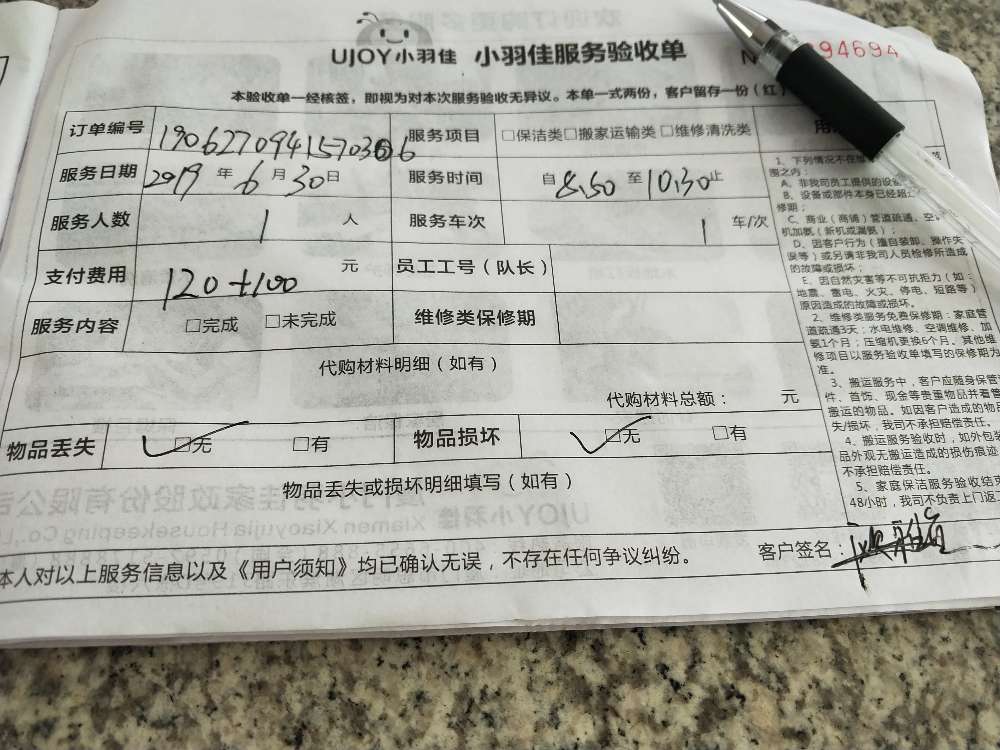 UJOY小羽佳 小羽佳服务验收单 N 94694
本验收单一经核签，即视为对本次服务验收无异议。本单一式两份，客户留存一份（红）
订单编号 服务项目 □保洁类□搬家运输类□维修清洗类
服务日期 2019 年 6 月 30 日 服务时间 自 8.50 至 10.30 止
服务人数 1 人 服务车次 1 车/次
支付费用 120+100 元 员工工号（队长）
服务内容 □完成 □未完成 维修类保修期
代购材料明细（如有）
代购材料总额： 元
物品丢失 ☑无 □有 物品损坏 ☑无 □有
物品丢失或损坏明细填写（如有）
本人对以上服务信息以及《用户须知》均已确认无误，不存在任何争议纠纷。 客户签名：
用
1、下列情况不在维
围之内：
A、非我司员工提供的设
B、设备或部件本身已经超
修期；
C、商业（商铺）管道疏通、空
机加氨（新机或漏氨）；
D、因客户行为（擅自装卸、操作失
误等）或另请非我司人员检修所造成
的故障或损坏；
E、因自然灾害等不可抗拒力（如：
地震、雷电、火灾、停电、短路等）
原因造成的故障或损坏。
2、维修类服务免费保修期：家庭管
道疏通3天；水电维修、空调维修、加
氨1个月；压缩机更换6个月。其他维
修项目以服务验收单填写的保修期为
准。
3、搬运服务中，客户应随身保管
件、首饰、现金等贵重物品并看管
搬运的物品。如因客户造成的物品
失/损坏，我司不承担赔偿责任。
4、搬运服务验收时，如外包装
品外观无搬运造成的损伤痕迹
不承担赔偿责任。
5、家庭保洁服务验收结束
48小时，我司不负责上门返工